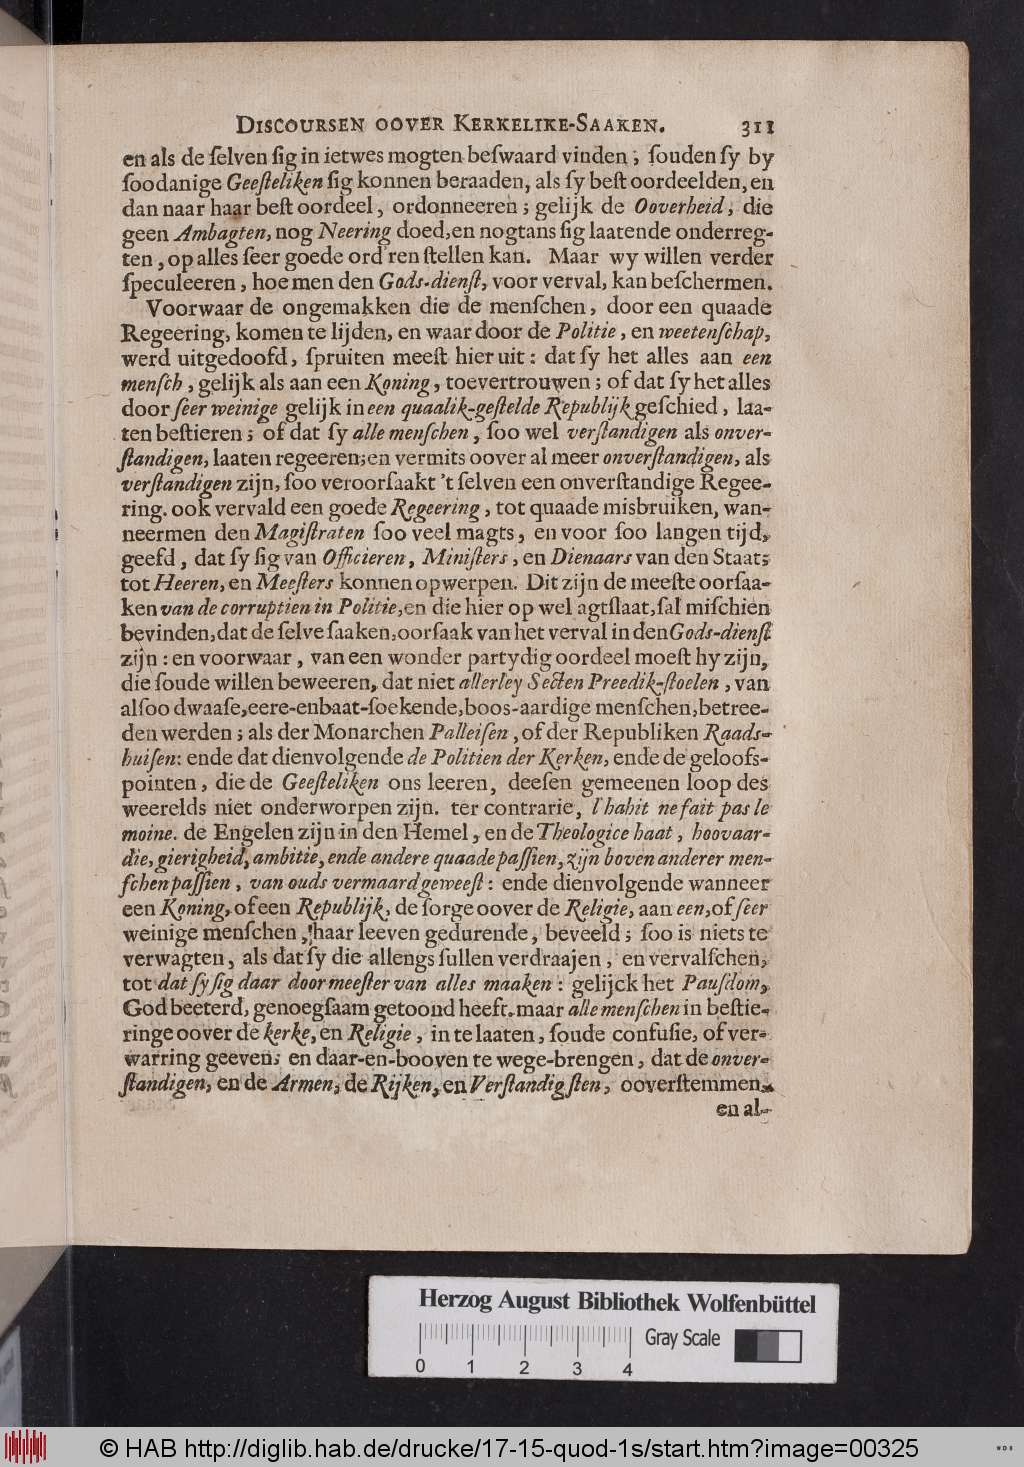 DISCOURSEN OOVER KERKELIKE-SAAKEN. 311
en als de ſelven ſig in ietwes mogten beſwaard vinden; ſouden ſy by
ſoodanige Geeſteliken ſig konnen beraaden, als ſy beſt oordeelden, en
dan naar haar beſt oordeel, ordonneeren; gelijk de Ooverheid, die
geen Ambagten, nog Neering doed, en nogtans ſig laatende onderreg-
ten, op alles ſeer goede ord'ren ſtellen kan. Maar wy willen verder
ſpeculeeren, hoe men den Gods-dienſt, voor verval, kan beſchermen.
Voorwaar de ongemakken die de menſchen, door een quaade
Regeering, komen te lijden, en waar door de Politie, en weetenſchap,
werd uitgedoofd, ſpruiten meeſt hier uit: dat ſy het alles aan een
menſch, gelijk als aan een Koning, toevertrouwen; of dat ſy het alles
door ſeer weinige gelijk in een quaalik-geſtelde Republijk geſchied, laa-
ten beſtieren; of dat ſy alle menſchen, ſoo wel verſtandigen als onver-
ſtandigen, laaten regeeren; en vermits oover al meer onverſtandigen, als
verſtandigen zijn, ſoo veroorſaakt 't ſelven een onverſtandige Regee-
ring. ook vervald een goede Regeering, tot quaade misbruiken, wan-
neermen den Magiſtraten ſoo veel magts, en voor ſoo langen tijd,
geefd, dat ſy ſig van Officieren, Miniſters, en Dienaars van den Staat;
tot Heeren, en Meeſters konnen opwerpen. Dit zijn de meeſte oorſaa-
ken van de corruptien in Politie, en die hier op wel agtſlaat, ſal miſchien
bevinden, dat de ſelve ſaaken, oorſaak van het verval in den Gods-dienſt
zijn: en voorwaar, van een wonder partydig oordeel moeſt hy zijn,
die ſoude willen beweeren, dat niet allerley Secten Preedik-ſtoelen, van
alſoo dwaaſe, eere-enbaat-ſoekende, boos-aardige menſchen, betree-
den werden; als der Monarchen Palleiſen, of der Republiken Raads-
huiſen: ende dat dienvolgende de Politien der Kerken, ende de geloofs-
pointen, die de Geeſteliken ons leeren, deeſen gemeenen loop des
weerelds niet onderworpen zijn. ter contrarie, l'habit ne fait pas le
moine. de Engelen zijn in den Hemel, en de Theologice haat, hoovaar-
die, gierigheid, ambitie, ende andere quaade paſſien, zijn boven anderer men-
ſchen paſſien, van ouds vermaard geweeſt: ende dienvolgende wanneer
een Koning, of een Republijk, de ſorge oover de Religie, aan een, of ſeer
weinige menſchen, haar leeven gedurende, beveeld; ſoo is niets te
verwagten, als dat ſy die allengs ſullen verdraajen, en vervalſchen,
tot dat ſy ſig daar door meeſter van alles maaken: gelijck het Pausdom,
God beeterd, genoegſaam getoond heeft. maar alle menſchen in beſtie-
ringe oover de kerke, en Religie, in te laaten, ſoude confuſie, of ver-
warring geeven; en daar-en-booven te wege-brengen, dat de onver-
ſtandigen, en de Armen, de Rijken, en Verſtandigſten, ooverſtemmen,
en al-
Herzog August Bibliothek Wolfenbüttel
Gray Scale
0 1 2 3 4
© HAB http://diglib.hab.de/drucke/17-15-quod-1s/start.htm?image=00325